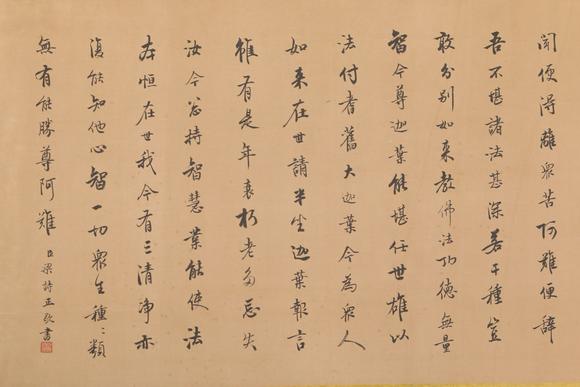 聞便得離眾苦阿難便辞
吾不堪諸法甚深若干種豈
敢分別如来教佛法功德無量
智今尊迦葉能堪任世雄以
法付耆舊大迦葉今為眾人
如来在世請半坐迦葉報言
雖有是年衰朽老多忘失
汝今总持智慧業能使法
本恒在世我今有三清淨亦
復能知他心智一切眾生種〻類
無有能勝尊阿難
臣梁詩正敬書